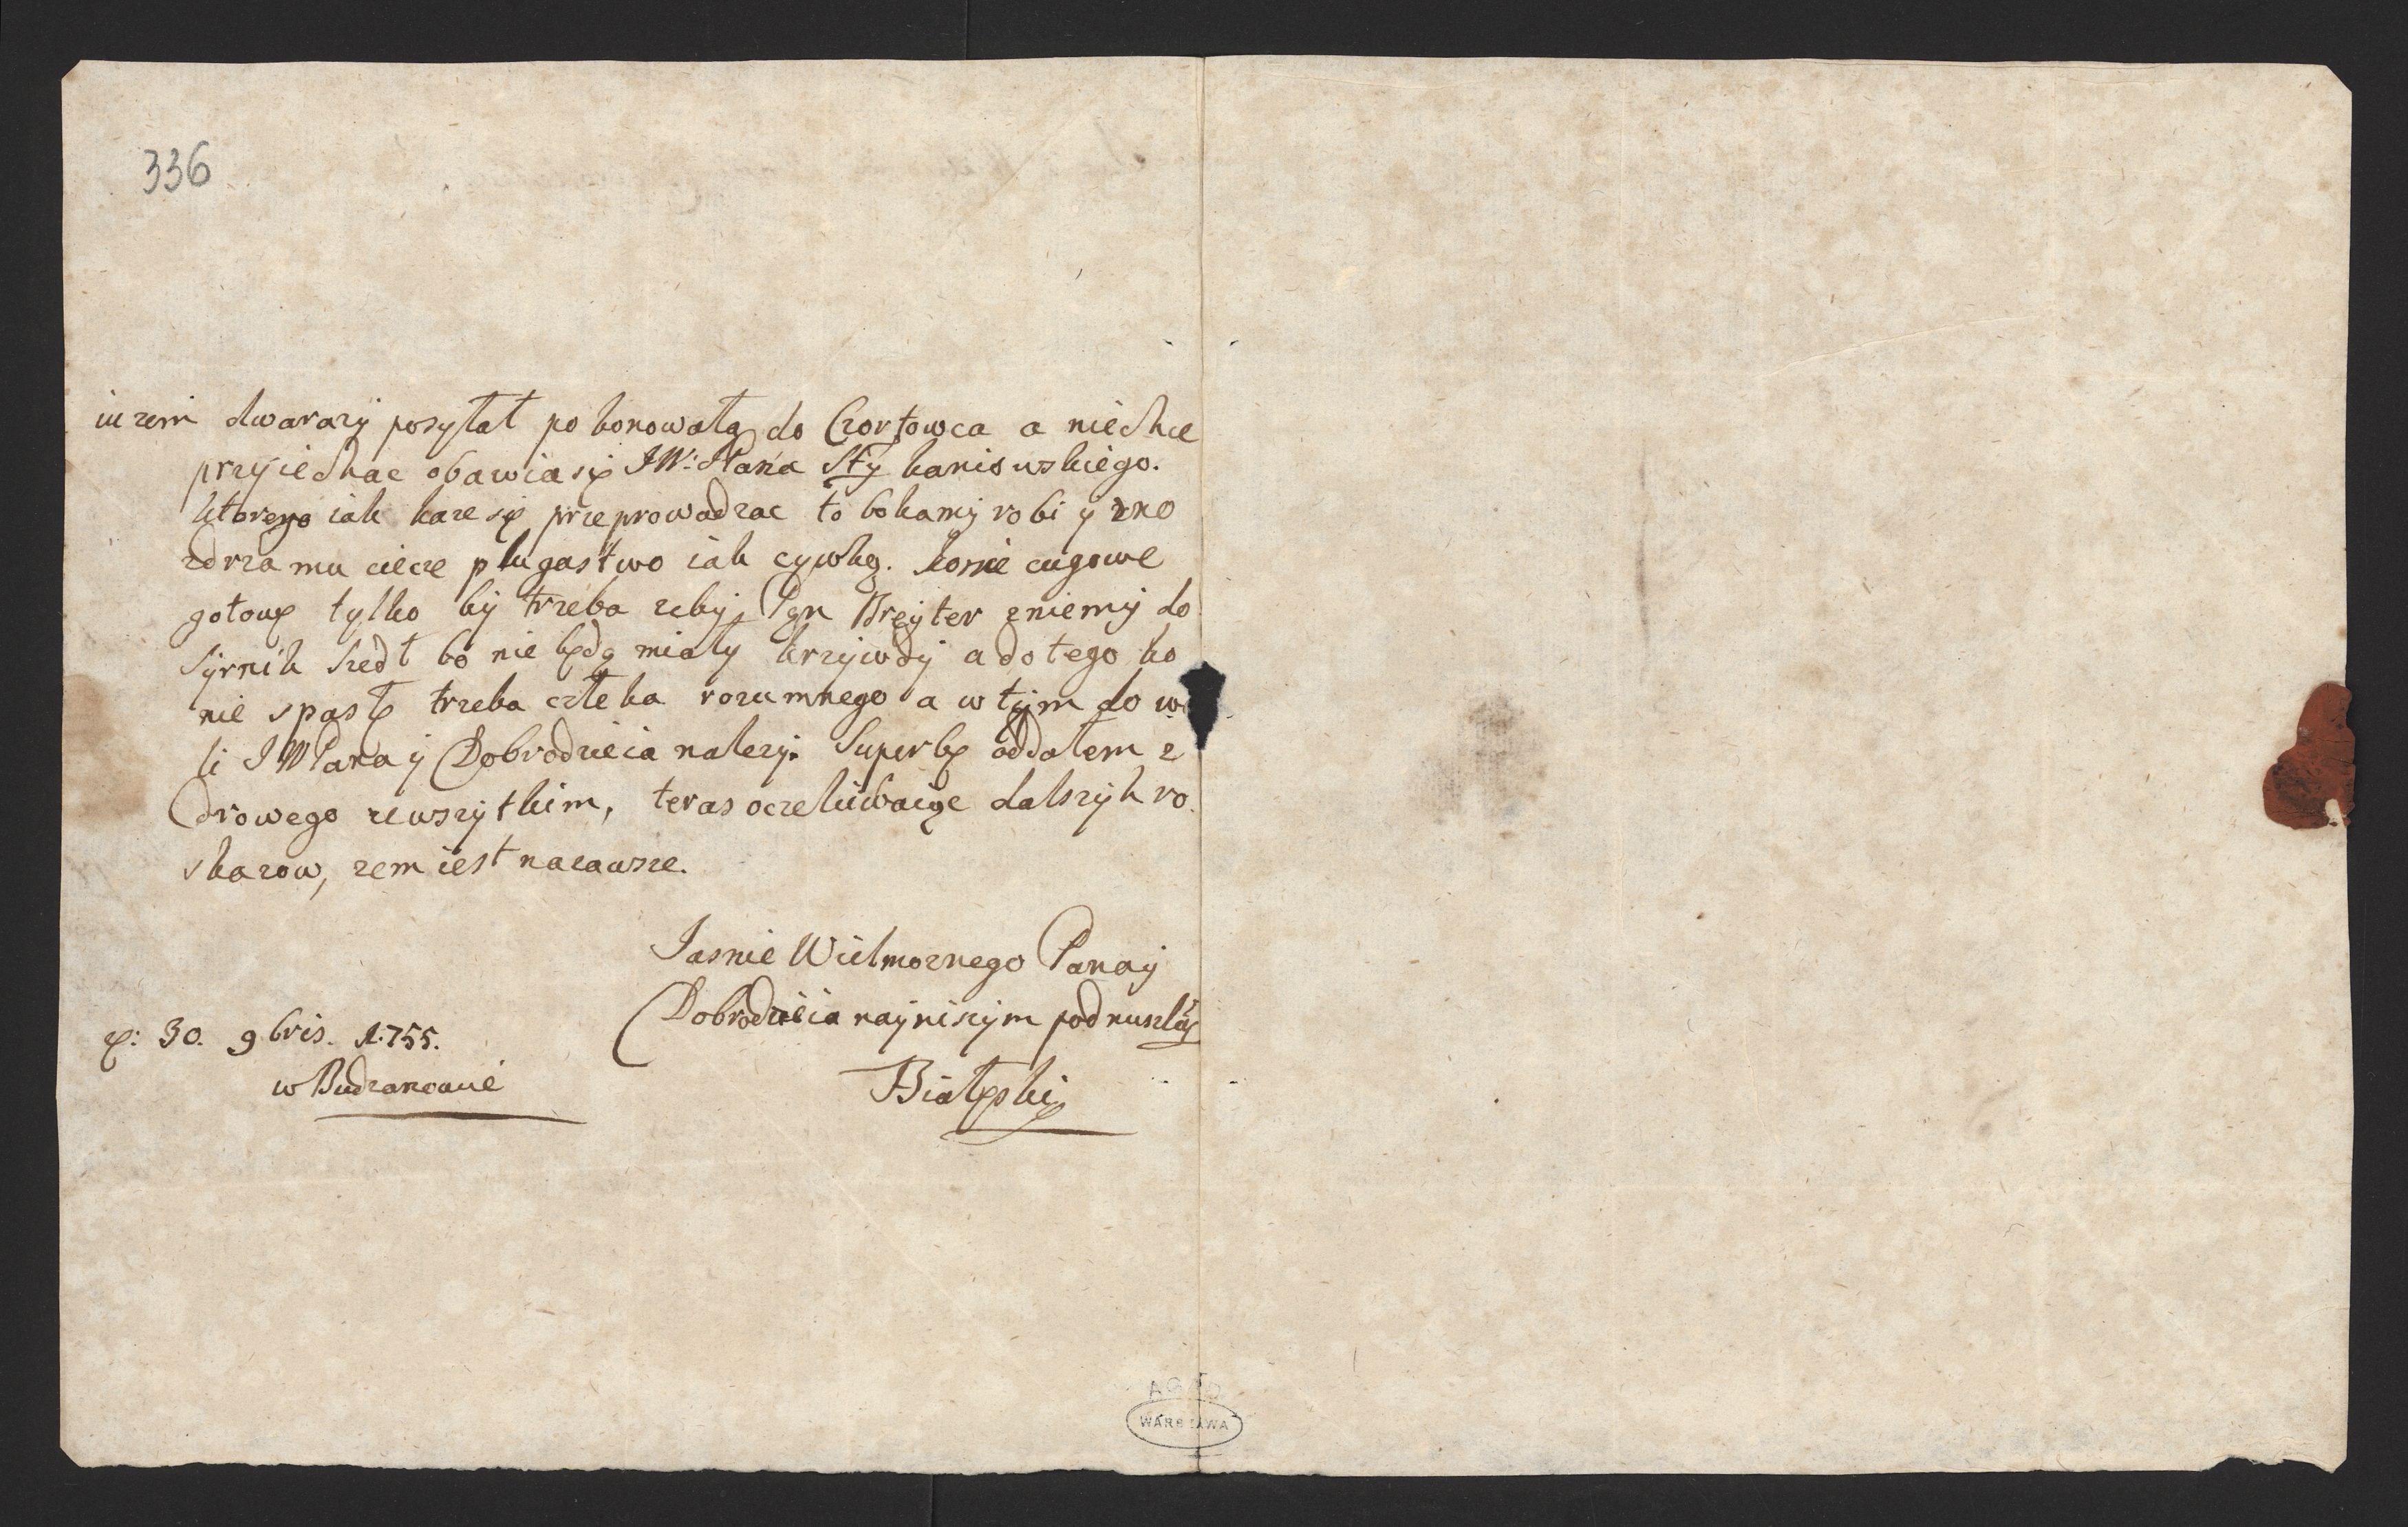 336
iuzem dwarazy posyłał po konowałą do Czortowca a niechce
przyiechac obawia się JW: Pana Sty kaniowskiego.
ktorego iak kaze się przeprowadzac to bokamy robi y zno
zdrza mu ciecze plugastwo iak cywką. konie cugowe
gotowę tylko by trzeba zeby Pan Breyter zniemy do
Syrnik szedł bo nie będą miały krzywdy a do tego ko
nie spasłę trzeba człeka rozumnego a w tym do wo
li JWPana y Dobrodzieia nalezy. Superbę oddałem z
drowego zewszytkim, teras oczekiwaiąc dalszyh ro
skazow, zem iest nazawsze.
Jasnie Wielmoznego Pana y
Dobrodzieia nayniszym podnuszkię
Białęski
30. 9bris. 1755.
w Budzanowie
AGAD
WARSZAWA